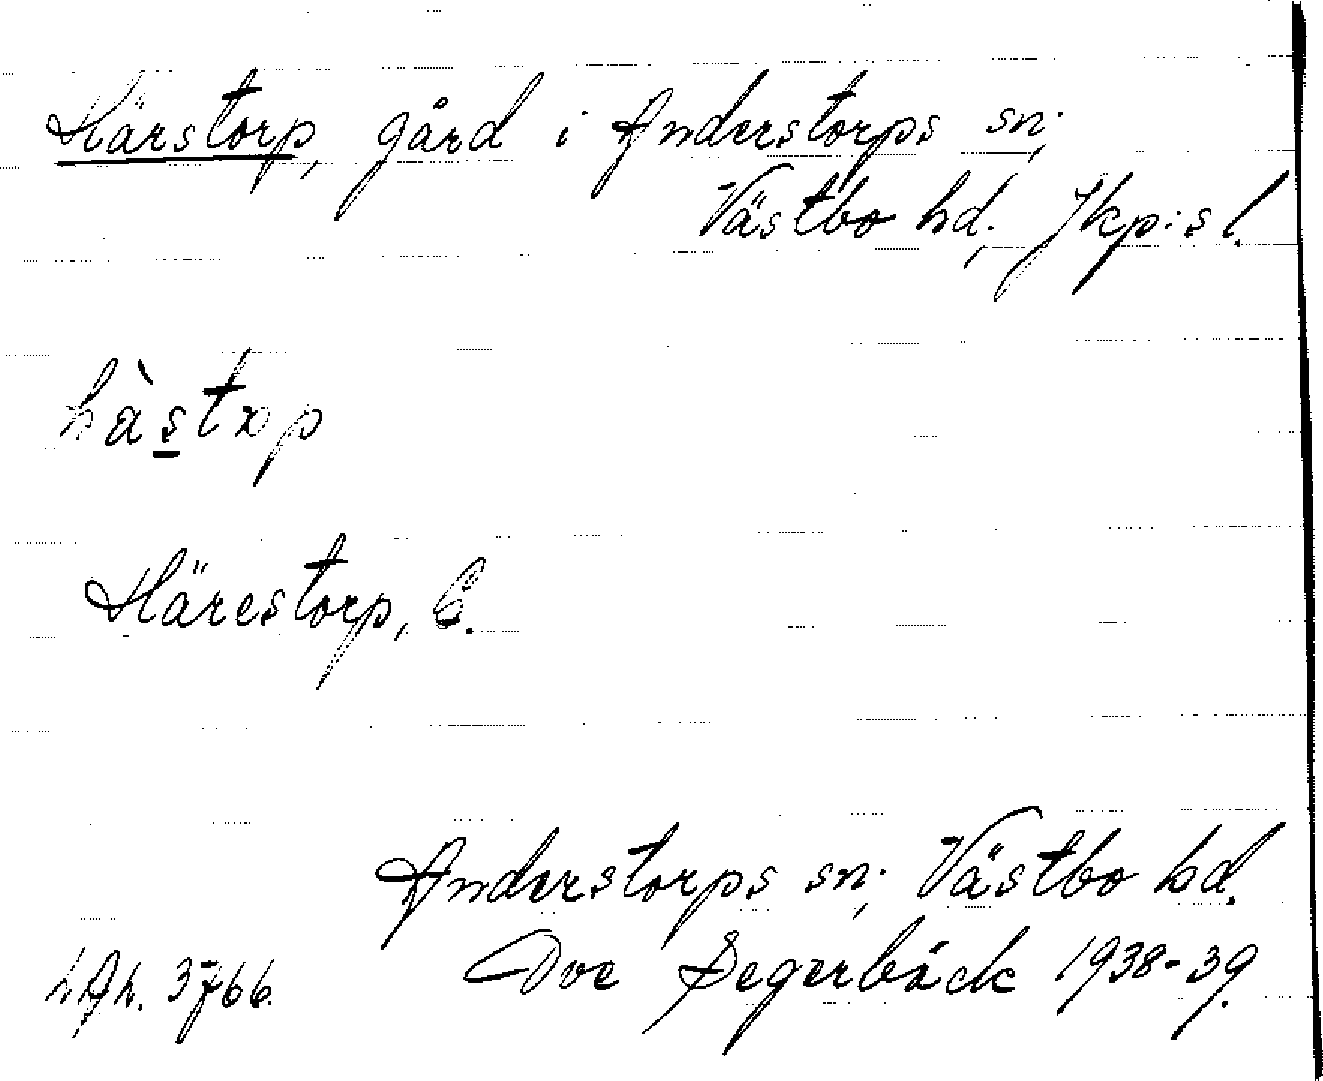 Härstorp, gård i Anderstorps sn;
Västbo hd; Jkp:s l.
hàstxp
Härestorp, C.
Anderstorps sn; Västbo hd.
Ove Segerbäck 1938-39.
LAL. 3766.